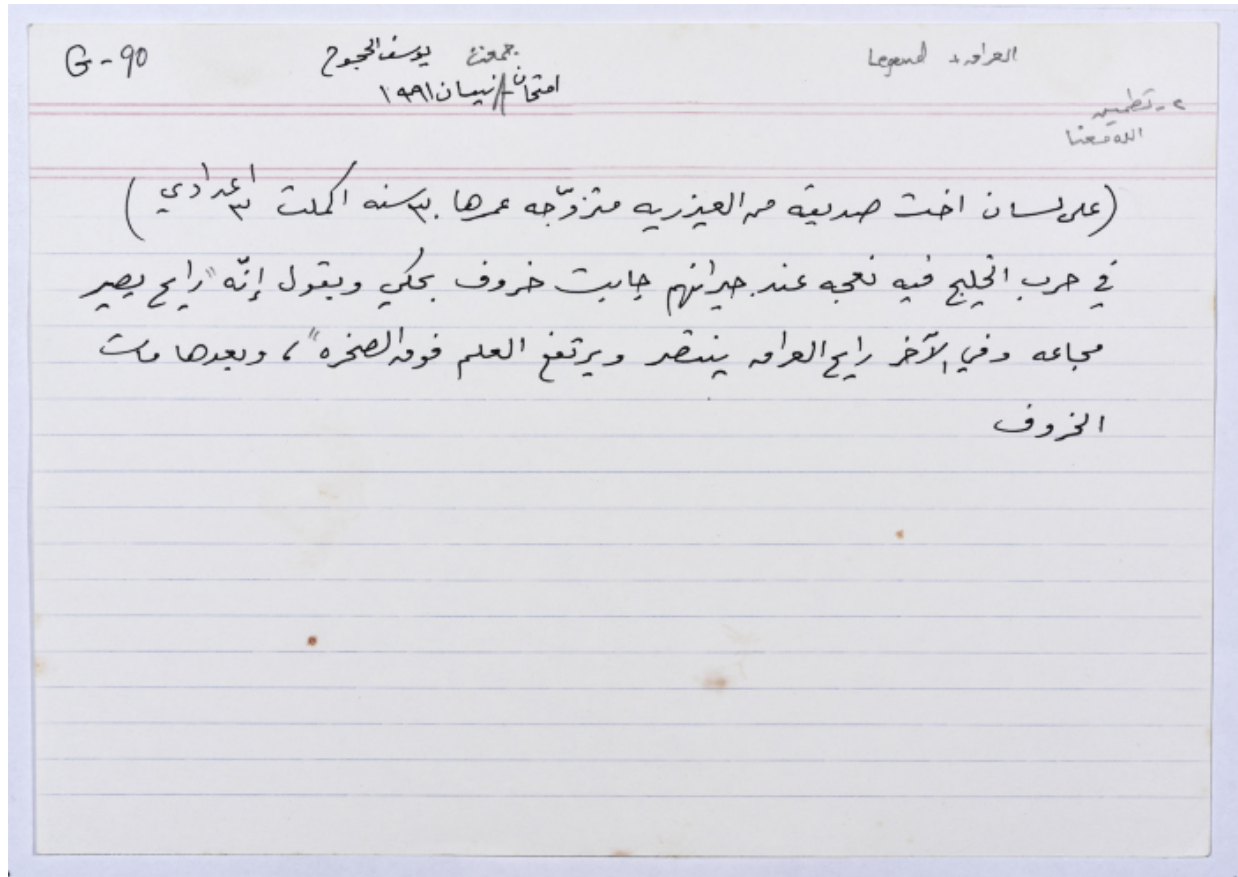 العراق + Legend
جمعت يوسف الحجوج
G-90
امتحان/نيسان ١٩٩١
٢- تطمين
الله معنا
(على لسان اخت صديقة من العيزريه متزوّجه عمرها ٣٠ سنه اكملت ٣ اعدادي)
في حرب الخليج فيه نعجه عند جيرانهم جابت خروف بحكي وبقول إنّه "رايح يصير
مجاعه وفي الآخر رايح العراق ينتصر ويرتفع العلم فوق الصخره"، وبعدها مات
الخروف